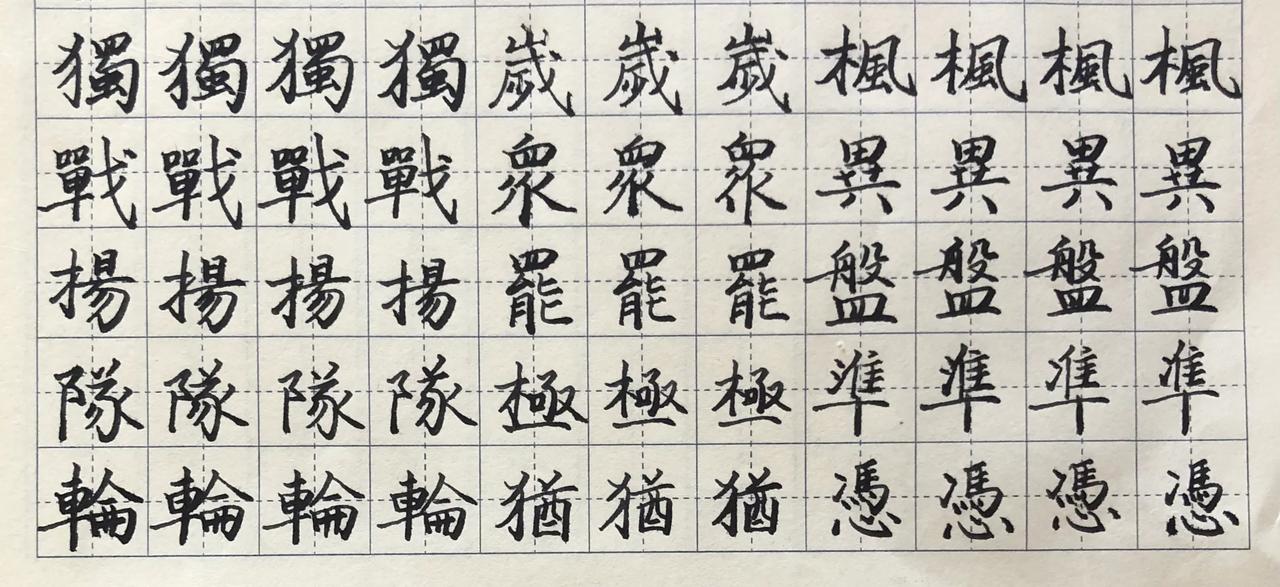 獨獨獨獨歲歲歲楓楓楓楓
戰戰戰戰眾眾眾異異異異
揚揚揚揚罷罷罷盤盤盤盤
隊隊隊隊極極極準準準準
輪輪輪輪猶猶猶憑憑憑憑